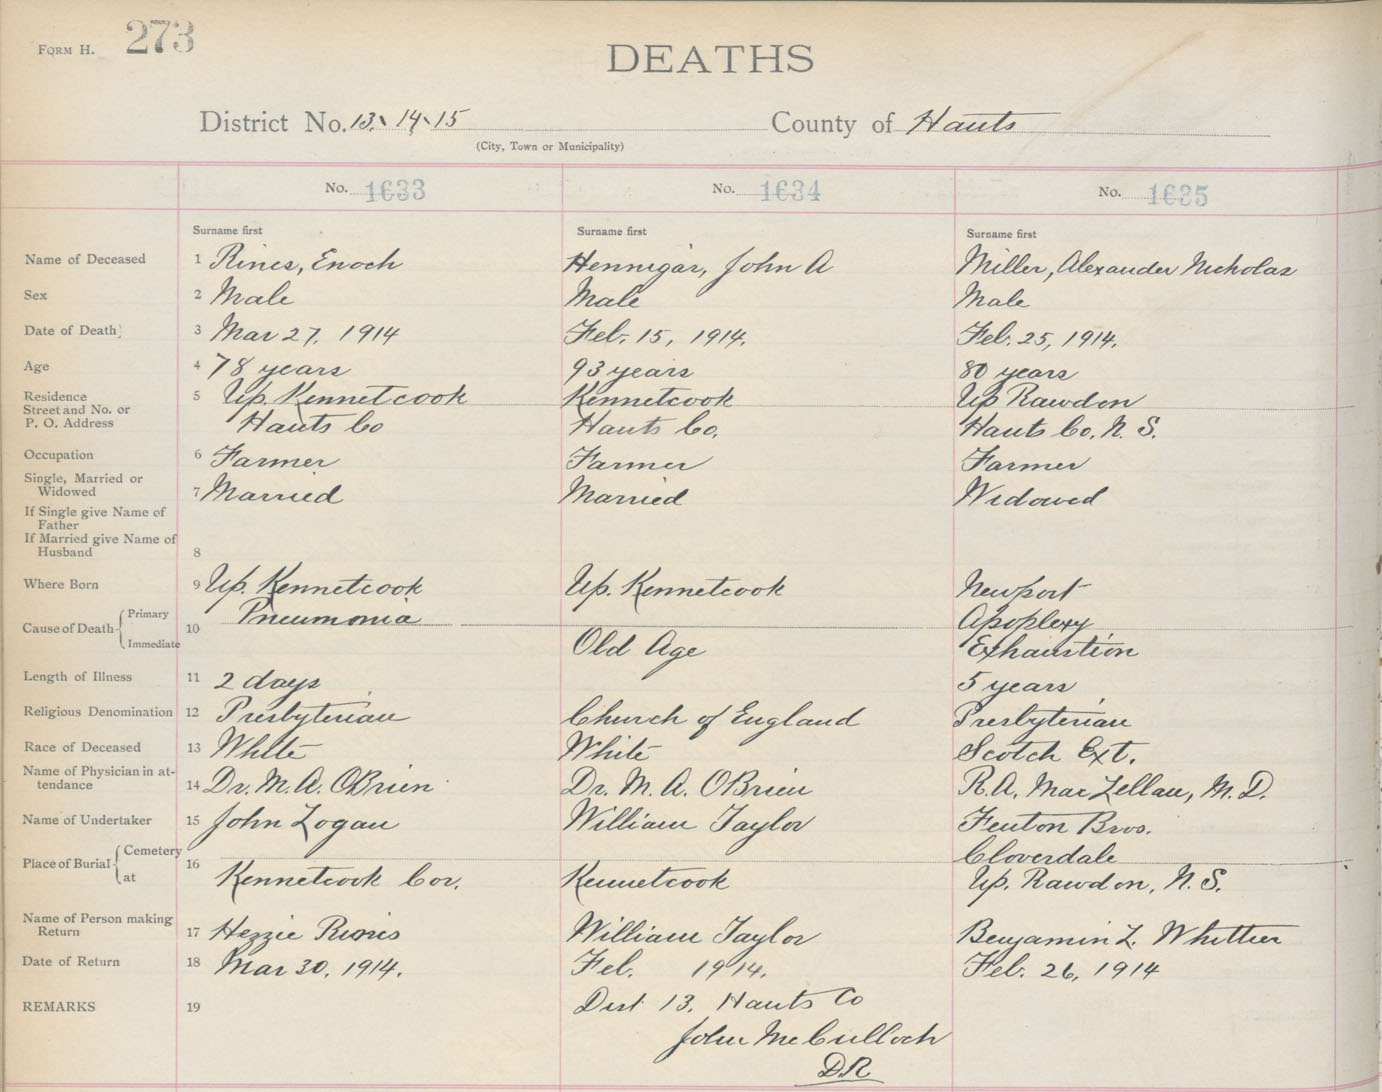 FORM H. 273
DEATHS
District No. 13, 14, 15 County of Hants
(City, Town or Municipality)
No. 1633 No. 1634 No. 1635
Surname first Surname first Surname first
Name of Deceased 1 Rines, Enoch Hennigar, John A Miller, Alexander Nicholas
Sex 2 Male Male Male
Date of Death 3 Mar 27, 1914 Feb. 15, 1914. Feb. 25, 1914.
Age 4 78 years 93 years 80 years
Residence 5 Up. Kennetcook Kennetcook Up Rawdon
Street and No. or
P. O. Address Hants Co Hants Co. Hants Co. N. S.
Occupation 6 Farmer Farmer Farmer
Single, Married or
Widowed 7 Married Married Widowed
If Single give Name of
Father
If Married give Name of
Husband 8
Where Born 9 Up. Kennetcook Up. Kennetcook Newport
Cause of Death Primary 10 Pneumonia Apoplexy
Immediate Old Age Exhaustion
Length of Illness 11 2 days 5 years
Religious Denomination 12 Presbyterian Church of England Presbyterian
Race of Deceased 13 White White Scotch Ext.
Name of Physician in at-
tendance 14 Dr. M. A. OBrien Dr. M. A. OBrien R. A. MacLellan, M. D.
Name of Undertaker 15 John Logan William Taylor Fenton Bros.
Place of Burial Cemetery 16 Cloverdale
at Kennetcook Cor. Kennetcook Up. Rawdon, N. S.
Name of Person making
Return 17 Hezzie Rines William Taylor Benjamin L. Whittier
Date of Return 18 Mar 30, 1914. Feb. 1914. Feb. 26, 1914
REMARKS 19 Dist 13. Hants Co
John McCulloch
D.R